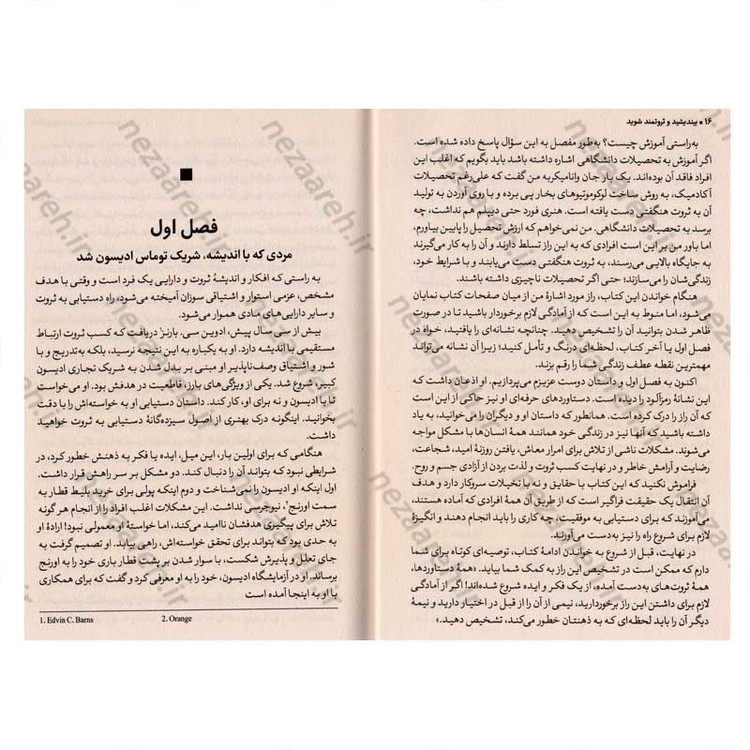 ۱۶ ■ بیندیشید و ثروتمند شوید
به‌راستی آموزش چیست؟ به‌طور مفصل به این سؤال پاسخ داده شده است.
اگر آموزش به تحصیلات دانشگاهی اشاره داشته باشد باید بگویم که اغلب این
افراد فاقد آن بوده‌اند. یک بار جان وانامیکر به من گفت که علی‌رغم تحصیلات
آکادمیک، به روش ساخت لوکوموتیوهای بخار پی برده و با روی آوردن به تولید
آن به ثروت هنگفتی دست یافته است. هنری فورد حتی دیپلم هم نداشت، چه
برسد به تحصیلات دانشگاهی. من نمی‌خواهم که ارزش تحصیل را پایین بیاورم،
اما باور من بر این است افرادی که به این راز تسلط دارند و آن را به کار می‌گیرند
به جایگاه بالایی می‌رسند، به ثروت هنگفتی دست می‌یابند و با شرایط خود،
زندگی‌شان را می‌سازند؛ حتی اگر تحصیلات ناچیزی داشته باشند.
هنگام خواندن این کتاب، راز مورد اشارهٔ من از میان صفحات کتاب نمایان
می‌شود، اما منوط به این است که از آمادگی لازم برخوردار باشید تا در صورت
ظاهر شدن بتوانید آن را تشخیص دهید. چنانچه نشانه‌ای را یافتید، خواه در
فصل اول یا آخر کتاب، لحظه‌ای درنگ و تأمل کنید؛ زیرا آن نشانه می‌تواند
مهمترین نقطه عطف زندگی شما را رقم بزند.
اکنون به فصل اول و داستان دوست عزیزم می‌پردازیم. او اذعان داشت که
این نشانهٔ رمزآلود را دیده است. دستاوردهای حرفه‌ای او نیز حاکی از این است
که آن راز را درک کرده است. همانطور که داستان او و دیگران را می‌خوانید، به یاد
داشته باشید که آنها نیز در زندگی خود همانند همهٔ انسان‌ها با مشکل مواجه
می‌شوند. مشکلات ناشی از تلاش برای امرار معاش، یافتن روزنهٔ امید، شجاعت،
رضایت و آرامش خاطر و در نهایت کسب ثروت و لذت بردن از آزادی جسم و روح.
فراموش نکنید که این کتاب با حقایق و نه با تخیلات سروکار دارد و هدف
آن انتقال یک حقیقت فراگیر است که از طریق آن همهٔ افرادی که آماده هستند،
می‌آموزند که برای دستیابی به موفقیت، چه کاری را باید انجام دهند و انگیزهٔ
لازم برای شروع راه را نیز به‌دست می‌آورند.
در نهایت، قبل از شروع به خواندن ادامهٔ کتاب، توصیه‌ای کوتاه برای شما
دارم که ممکن است در تشخیص این راز به کمک شما بیاید. «همهٔ دستاوردها،
همهٔ ثروت‌های به‌دست آمده، از یک فکر و ایده شروع شده‌اند! اگر از آمادگی
لازم برای داشتن این راز برخوردارید، نیمی از آن را از قبل در اختیار دارید و نیمهٔ
دیگر آن را باید لحظه‌ای که به ذهنتان خطور می‌کند، تشخیص دهید.»
■
فصل اول
مردی که با اندیشه، شریک توماس ادیسون شد
به راستی که افکار و اندیشهٔ ثروت و دارایی یک فرد است و وقتی با هدف
مشخص، عزمی استوار و اشتیاقی سوزان آمیخته می‌شود، راه دستیابی به ثروت
و سایر دارایی‌های مادی هموار می‌شود.
بیش از سی سال پیش، ادوین سی. بارنز¹ دریافت که کسب ثروت ارتباط
مستقیمی با اندیشه دارد. او به یکباره به این نتیجه نرسید، بلکه به‌تدریج و با
شور و اشتیاق وصف‌ناپذیر او مبنی بر بدل شدن به شریک تجاری ادیسون
کبیر، شروع شد. یکی از ویژگی‌های بارز، قاطعیت در هدفش بود. او می‌خواست
تا با ادیسون و نه برای او، کار کند. داستان دستیابی او به خواسته‌اش را با دقت
بخوانید. اینگونه درک بهتری از اصول سیزده‌گانهٔ دستیابی به ثروت خواهید
داشت.
هنگامی که برای اولین بار، این میل، ایده یا فکر به ذهنش خطور کرد، در
شرایطی نبود که بتواند آن را دنبال کند. دو مشکل بر سر راهش قرار داشت.
اول اینکه او ادیسون را نمی‌شناخت و دوم اینکه پولی برای خرید بلیط قطار به
سمت اورنج²، نیوجرسی نداشت. این مشکلات اغلب افراد را از انجام هر گونه
تلاش برای پیگیری هدفشان ناامید می‌کند، اما خواستهٔ او معمولی نبود! ارادهٔ او
به حدی بود که بتواند برای تحقق خواسته‌اش، راهی بیابد. او تصمیم گرفت به
جای تعلل و پذیرش شکست، با سوار شدن بر پشت قطار باری خود را به اورنج
برساند. او در آزمایشگاه ادیسون، خود را به او معرفی کرد و گفت که برای همکاری
با او به اینجا آمده است
1. Edvin C. Barns
2. Orange
nezaareh.ir